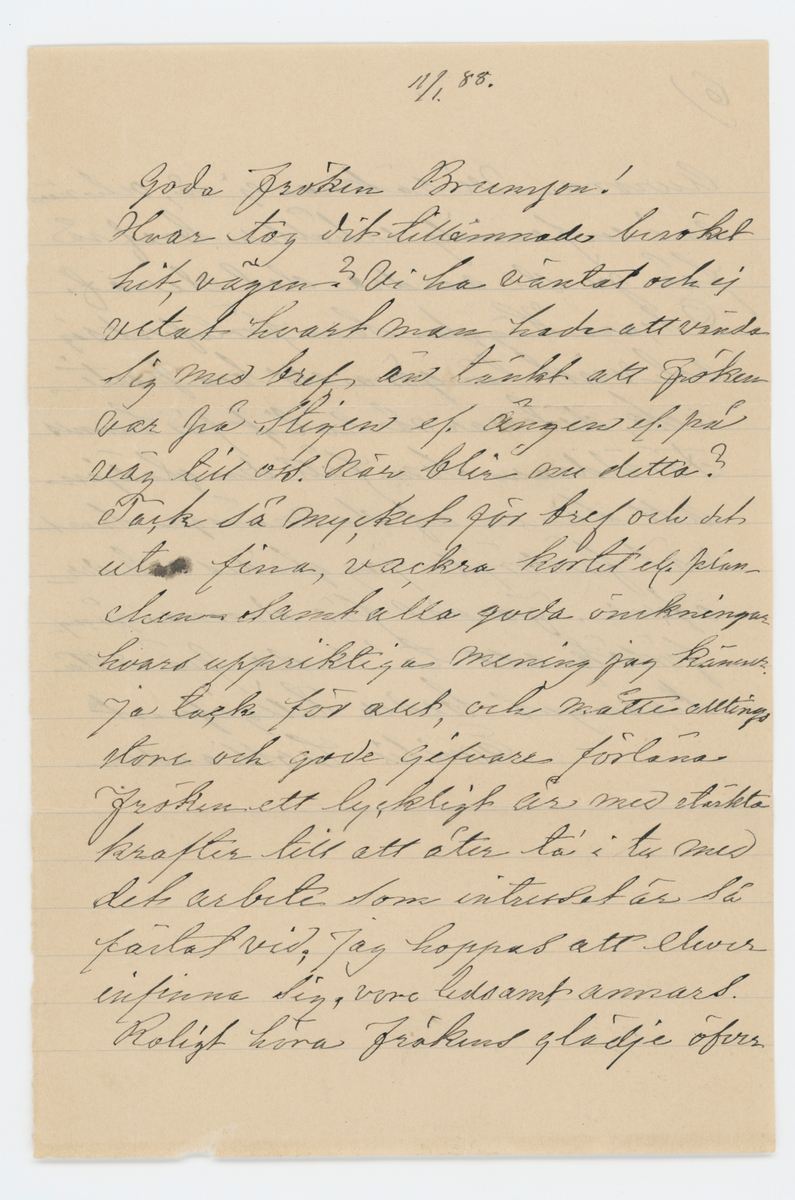 11/1. 88.
Goda Fröken Brunson!
Hvar tog det tillämnade besöket
hit, vägen? Vi ha väntat och ej
vetat hvart man hade att vända
sig med bref, än tänkt att Fröken
var på Stigen el. Ängen el. på
väg till oss. När blir nu detta?
Tack så mycket för bref och det
fina, vackra kortet el. plan-
chen samt alla goda önskningar
hvars uppriktiga mening jag känner.
Ja tack för allt, och måtte alltings
store och gode Gifvare förläna
Fröken ett lyckligt år med stärkta
krafter till att åter ta' i tu med
det arbete som intresset är så
fästat vid, jag hoppas att elever
infinna sig, vore ledsamt annars.
Roligt höra Frökens glädje öfver